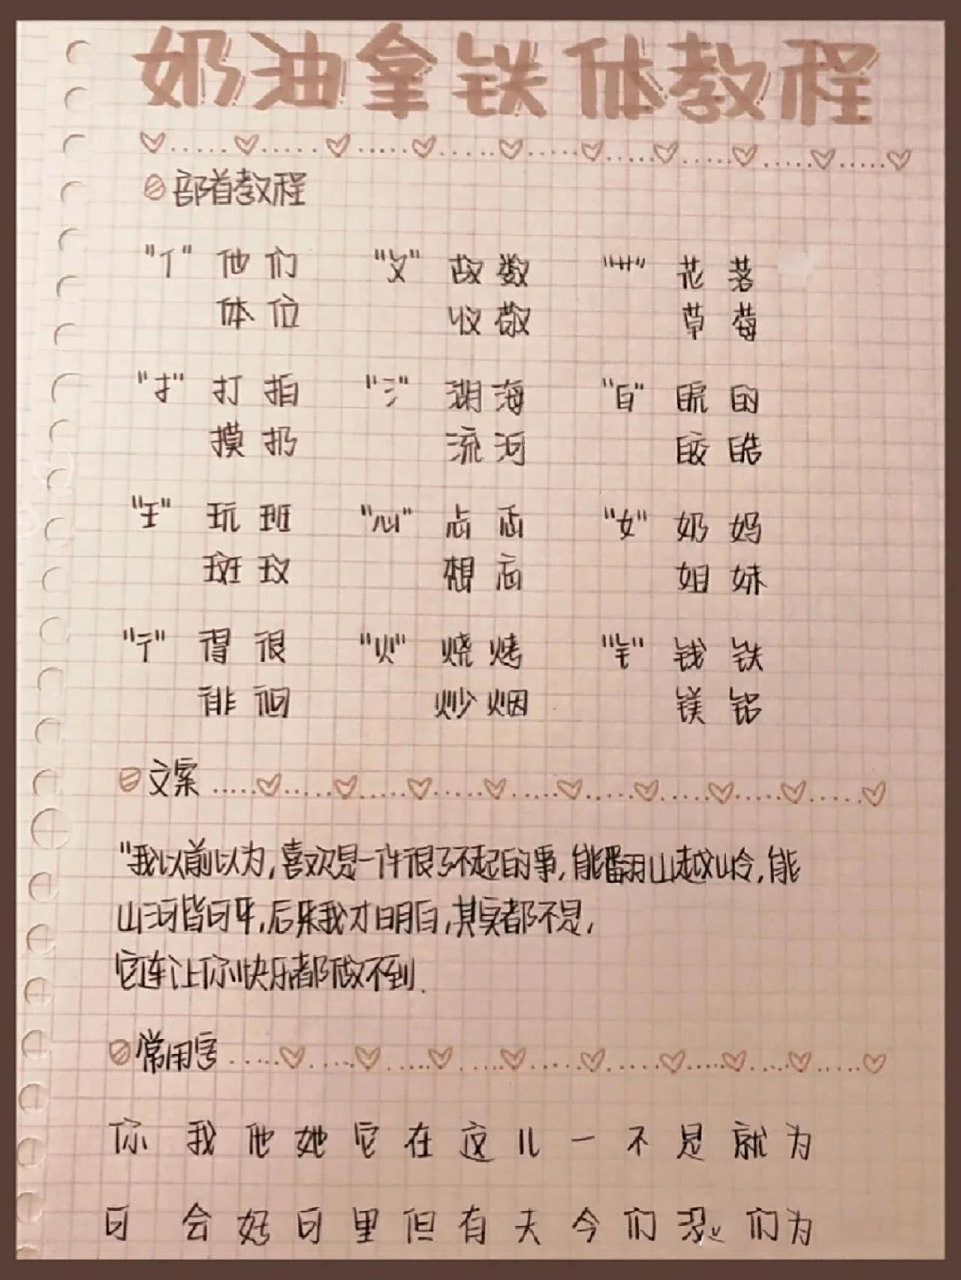 奶油拿铁体教程
部首教程
"亻" 他 们 "攵" 故 数 "艹" 花 落
体 位 收 敬 草 莓
"扌" 打 拍 "氵" 湖 海 "白" 皖 的
摸 扔 流 河 皎 皓
"王" 玩 班 "心" 忐 忑
斑 玫 想 忘
"女" 奶 妈
姐 妹
"彳" 得 很 "火" 烧 烤 "钅" 钱 铁
徘 徊 炒 烟 镁 铝
文案
"我以前以为,喜欢是一件很了不起的事,能翻山越岭,能
山河皆可平,后来我才明白,其实都不是,
它连让你快乐都做不到.
常用字
你 我 他 她 它 在 这 儿 一 不 是 就 为
日 会 好 日 里 但 有 天 今 们 没 们 为